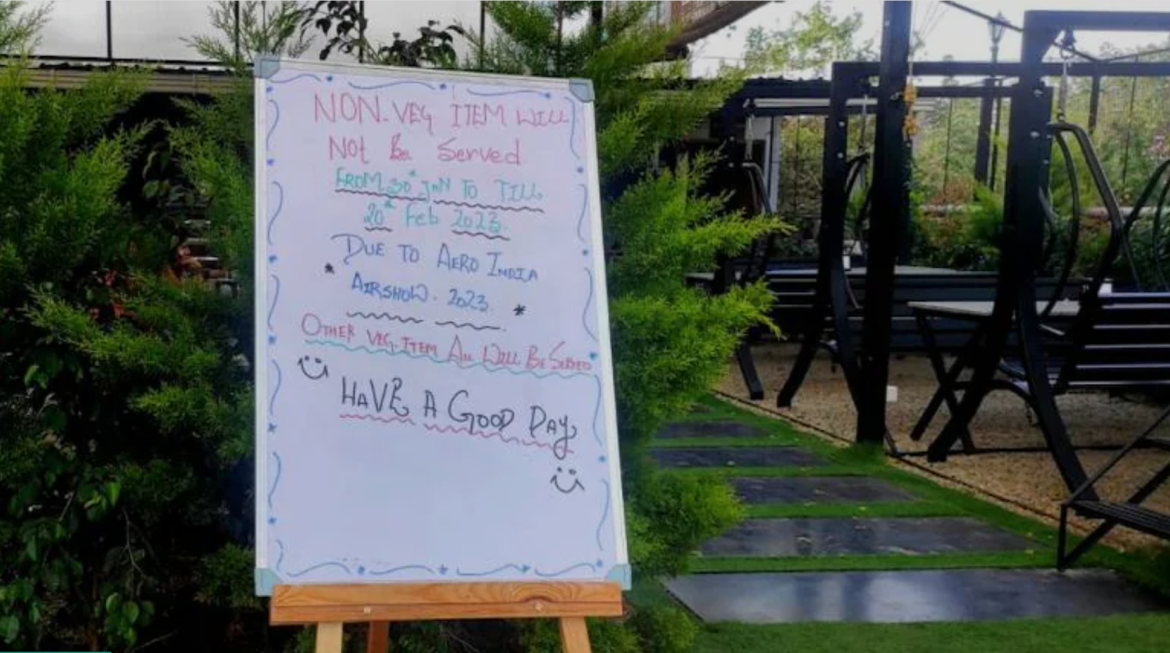 NON-VEG ITEM WILL
NOt Be Served
FROM 30th JAN TO TILL
20th Feb 2023.
DUE TO AERO INDIA
* AIRSHOW. 2023. *
OTHER VEG-ITEM All WILL BE SERVED
HAVE A GOOD DAY,